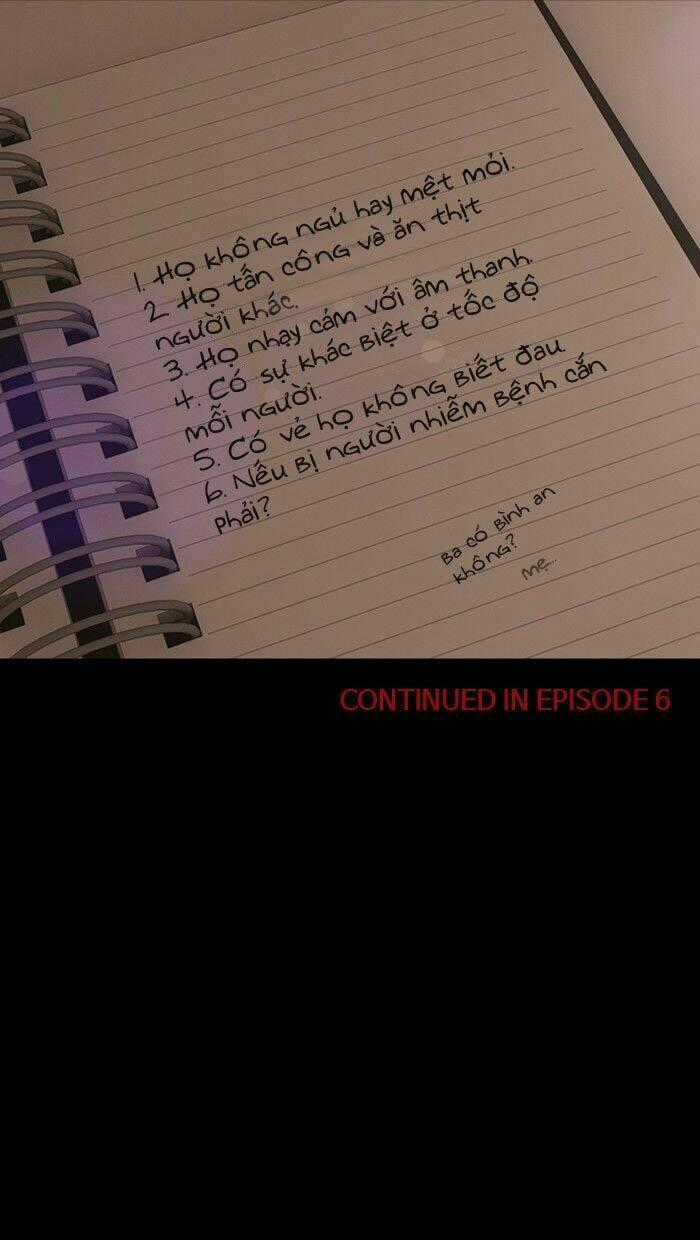 1. Họ không ngủ hay mệt mỏi.
2 Họ tấn công và ăn thịt
người khác.
3. Họ nhạy cảm với âm thanh.
4. Có sự khác biệt ở tốc độ
mỗi người.
5. Có vẻ họ không biết đau
6. Nếu bị người nhiễm bệnh cắn
phải?
Ba có bình an
không?
mẹ..
CONTINUED IN EPISODE 6